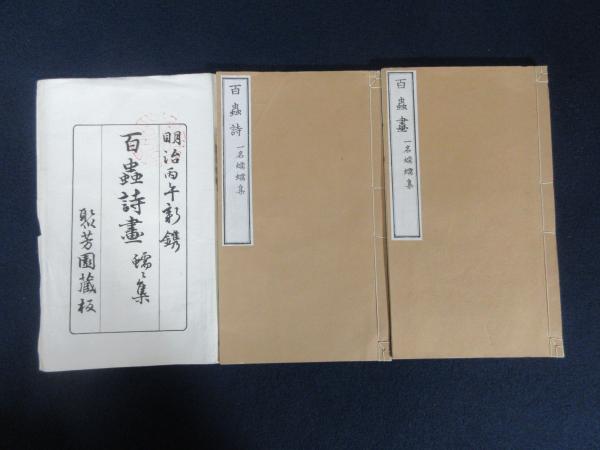 明治丙午新鐫
百蟲詩畫 蠕〻集
聚芳園藏板
百蟲詩 一名蠕蠕集
百蟲畫 一名蠕蠕集